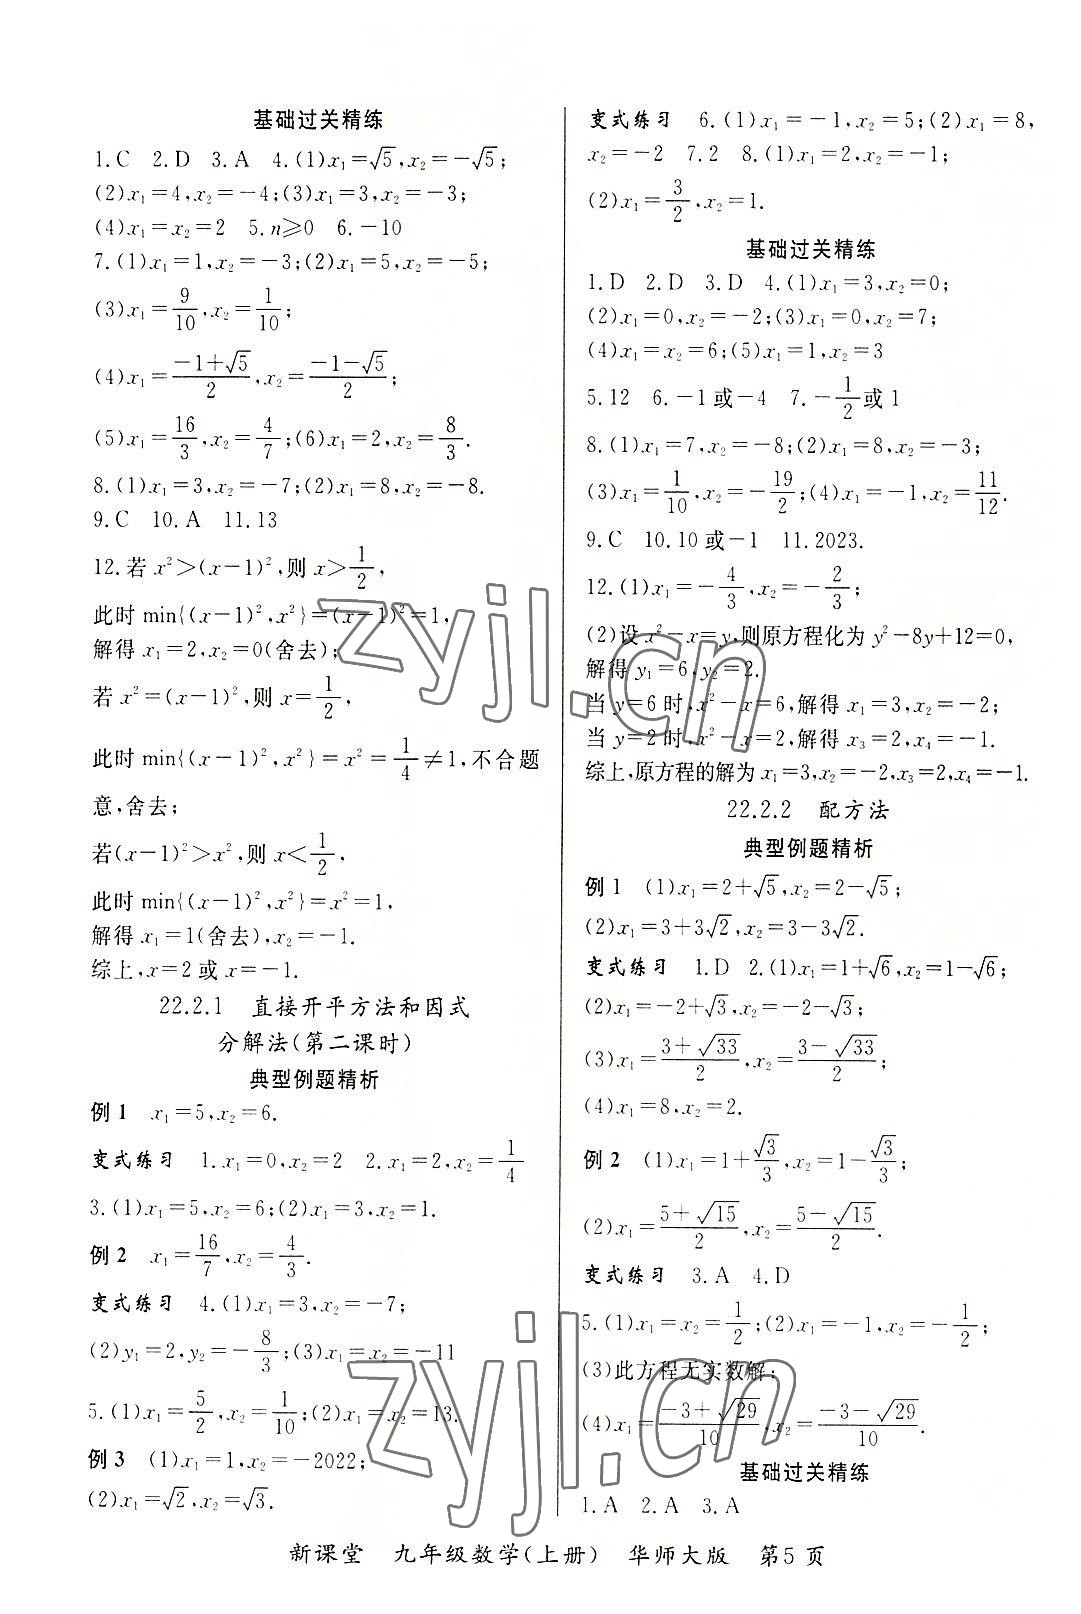 基础过关精练
1.C 2.D 3.A 4.(1)x₁=√5,x₂=-√5;
(2)x₁=4,x₂=-4;(3)x₁=3,x₂=-3;
(4)x₁=x₂=2 5.n≥0 6.-10
7.(1)x₁=1,x₂=-3;(2)x₁=5,x₂=-5;
(3)x₁=9/10,x₂=1/10;
(4)x₁=(-1+√5)/2,x₂=(-1-√5)/2;
(5)x₁=16/3,x₂=4/7;(6)x₁=2,x₂=8/3.
8.(1)x₁=3,x₂=-7;(2)x₁=8,x₂=-8.
9.C 10.A 11.13
12.若 x²>(x-1)²,则 x>1/2,
此时 min{(x-1)²,x²}=(x-1)²=1,
解得 x₁=2,x₂=0(舍去);
若 x²=(x-1)²,则 x=1/2,
此时 min{(x-1)²,x²}=x²=1/4≠1,不合题
意,舍去;
若(x-1)²>x²,则 x<1/2,
此时 min{(x-1)²,x²}=x²=1,
解得 x₁=1(舍去),x₂=-1.
综上,x=2 或 x=-1.
22.2.1 直接开平方法和因式
分解法(第二课时)
典型例题精析
例1 x₁=5,x₂=6.
变式练习 1.x₁=0,x₂=2 2.x₁=2,x₂=1/4
3.(1)x₁=5,x₂=6;(2)x₁=3,x₂=1.
例2 x₁=16/7,x₂=4/3.
变式练习 4.(1)x₁=3,x₂=-7;
(2)y₁=2,y₂=-8/3;(3)x₁=x₂=-11
5.(1)x₁=5/2,x₂=1/10;(2)x₁=x₂=13.
例3 (1)x₁=1,x₂=-2022;
(2)x₁=√2,x₂=√3.
变式练习 6.(1)x₁=-1,x₂=5;(2)x₁=8,
x₂=-2 7.2 8.(1)x₁=2,x₂=-1;
(2)x₁=3/2,x₂=1.
基础过关精练
1.D 2.D 3.D 4.(1)x₁=3,x₂=0;
(2)x₁=0,x₂=-2;(3)x₁=0,x₂=7;
(4)x₁=x₂=6;(5)x₁=1,x₂=3
5.12 6.-1或-4 7.-1/2或1
8.(1)x₁=7,x₂=-8;(2)x₁=8,x₂=-3;
(3)x₁=1/10,x₂=-19/2;(4)x₁=-1,x₂=11/12.
9.C 10.10或-1 11.2023.
12.(1)x₁=-4/3,x₂=-2/3;
(2)设 x²-x=y,则原方程化为 y²-8y+12=0,
解得 y₁=6,y₂=2.
当 y=6 时,x²-x=6,解得 x₁=3,x₂=-2;
当 y=2 时,x²-x=2,解得 x₃=2,x₄=-1.
综上,原方程的解为 x₁=3,x₂=-2,x₃=2,x₄=-1.
22.2.2 配方法
典型例题精析
例1 (1)x₁=2+√5,x₂=2-√5;
(2)x₁=3+3√2,x₂=3-3√2.
变式练习 1.D 2.(1)x₁=1+√6,x₂=1-√6;
(2)x₁=-2+√3,x₂=-2-√3;
(3)x₁=(3+√33)/2,x₂=(3-√33)/2;
(4)x₁=8,x₂=2.
例2 (1)x₁=1+√3/3,x₂=1-√3/3;
(2)x₁=(5+√15)/2,x₂=(5-√15)/2.
变式练习 3.A 4.D
5.(1)x₁=x₂=1/2;(2)x₁=-1,x₂=-1/2;
(3)此方程无实数解;
(4)x₁=(-3+√29)/10,x₂=(-3-√29)/10.
基础过关精练
1.A 2.A 3.A
新课堂 九年级数学(上册) 华师大版 第5页
zyjl.cn
zyjl.cn